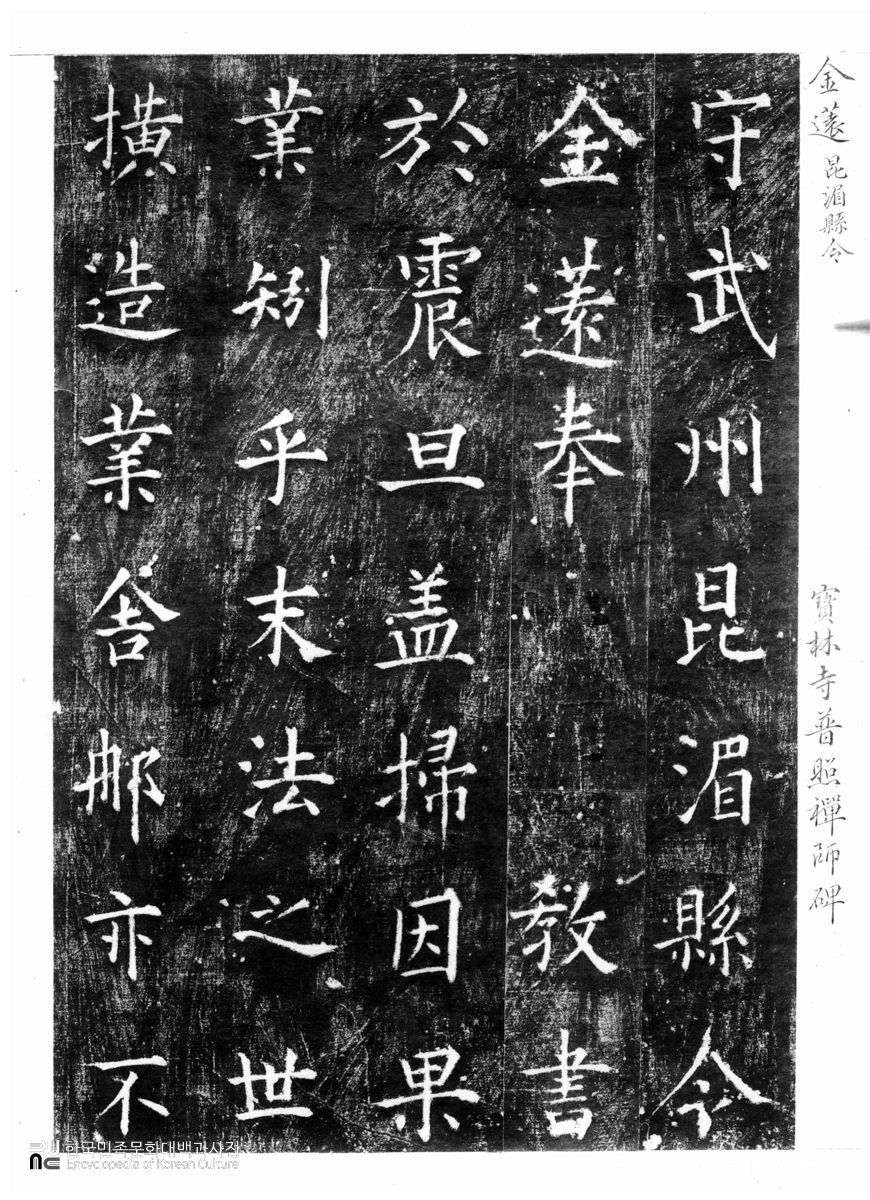 金薳 昆湄縣令
寶林寺普照禪師碑
守武州昆湄縣令
金薳奉 教書
於震旦盖掃因果
業矧乎末法之世
撗造業舍那亦不
한국민족문화대백과사전
Encyclopedia of Korean Culture